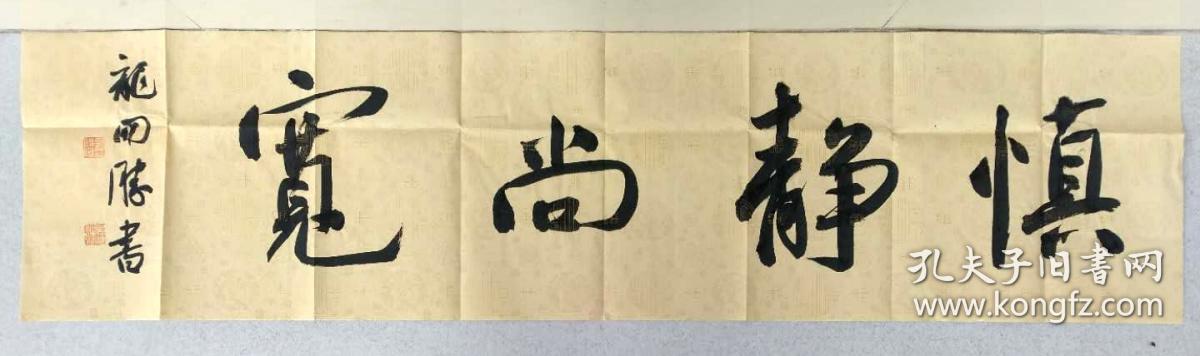 慎静尚寬
龍開勝書
孔夫子旧書网
www.kongfz.com